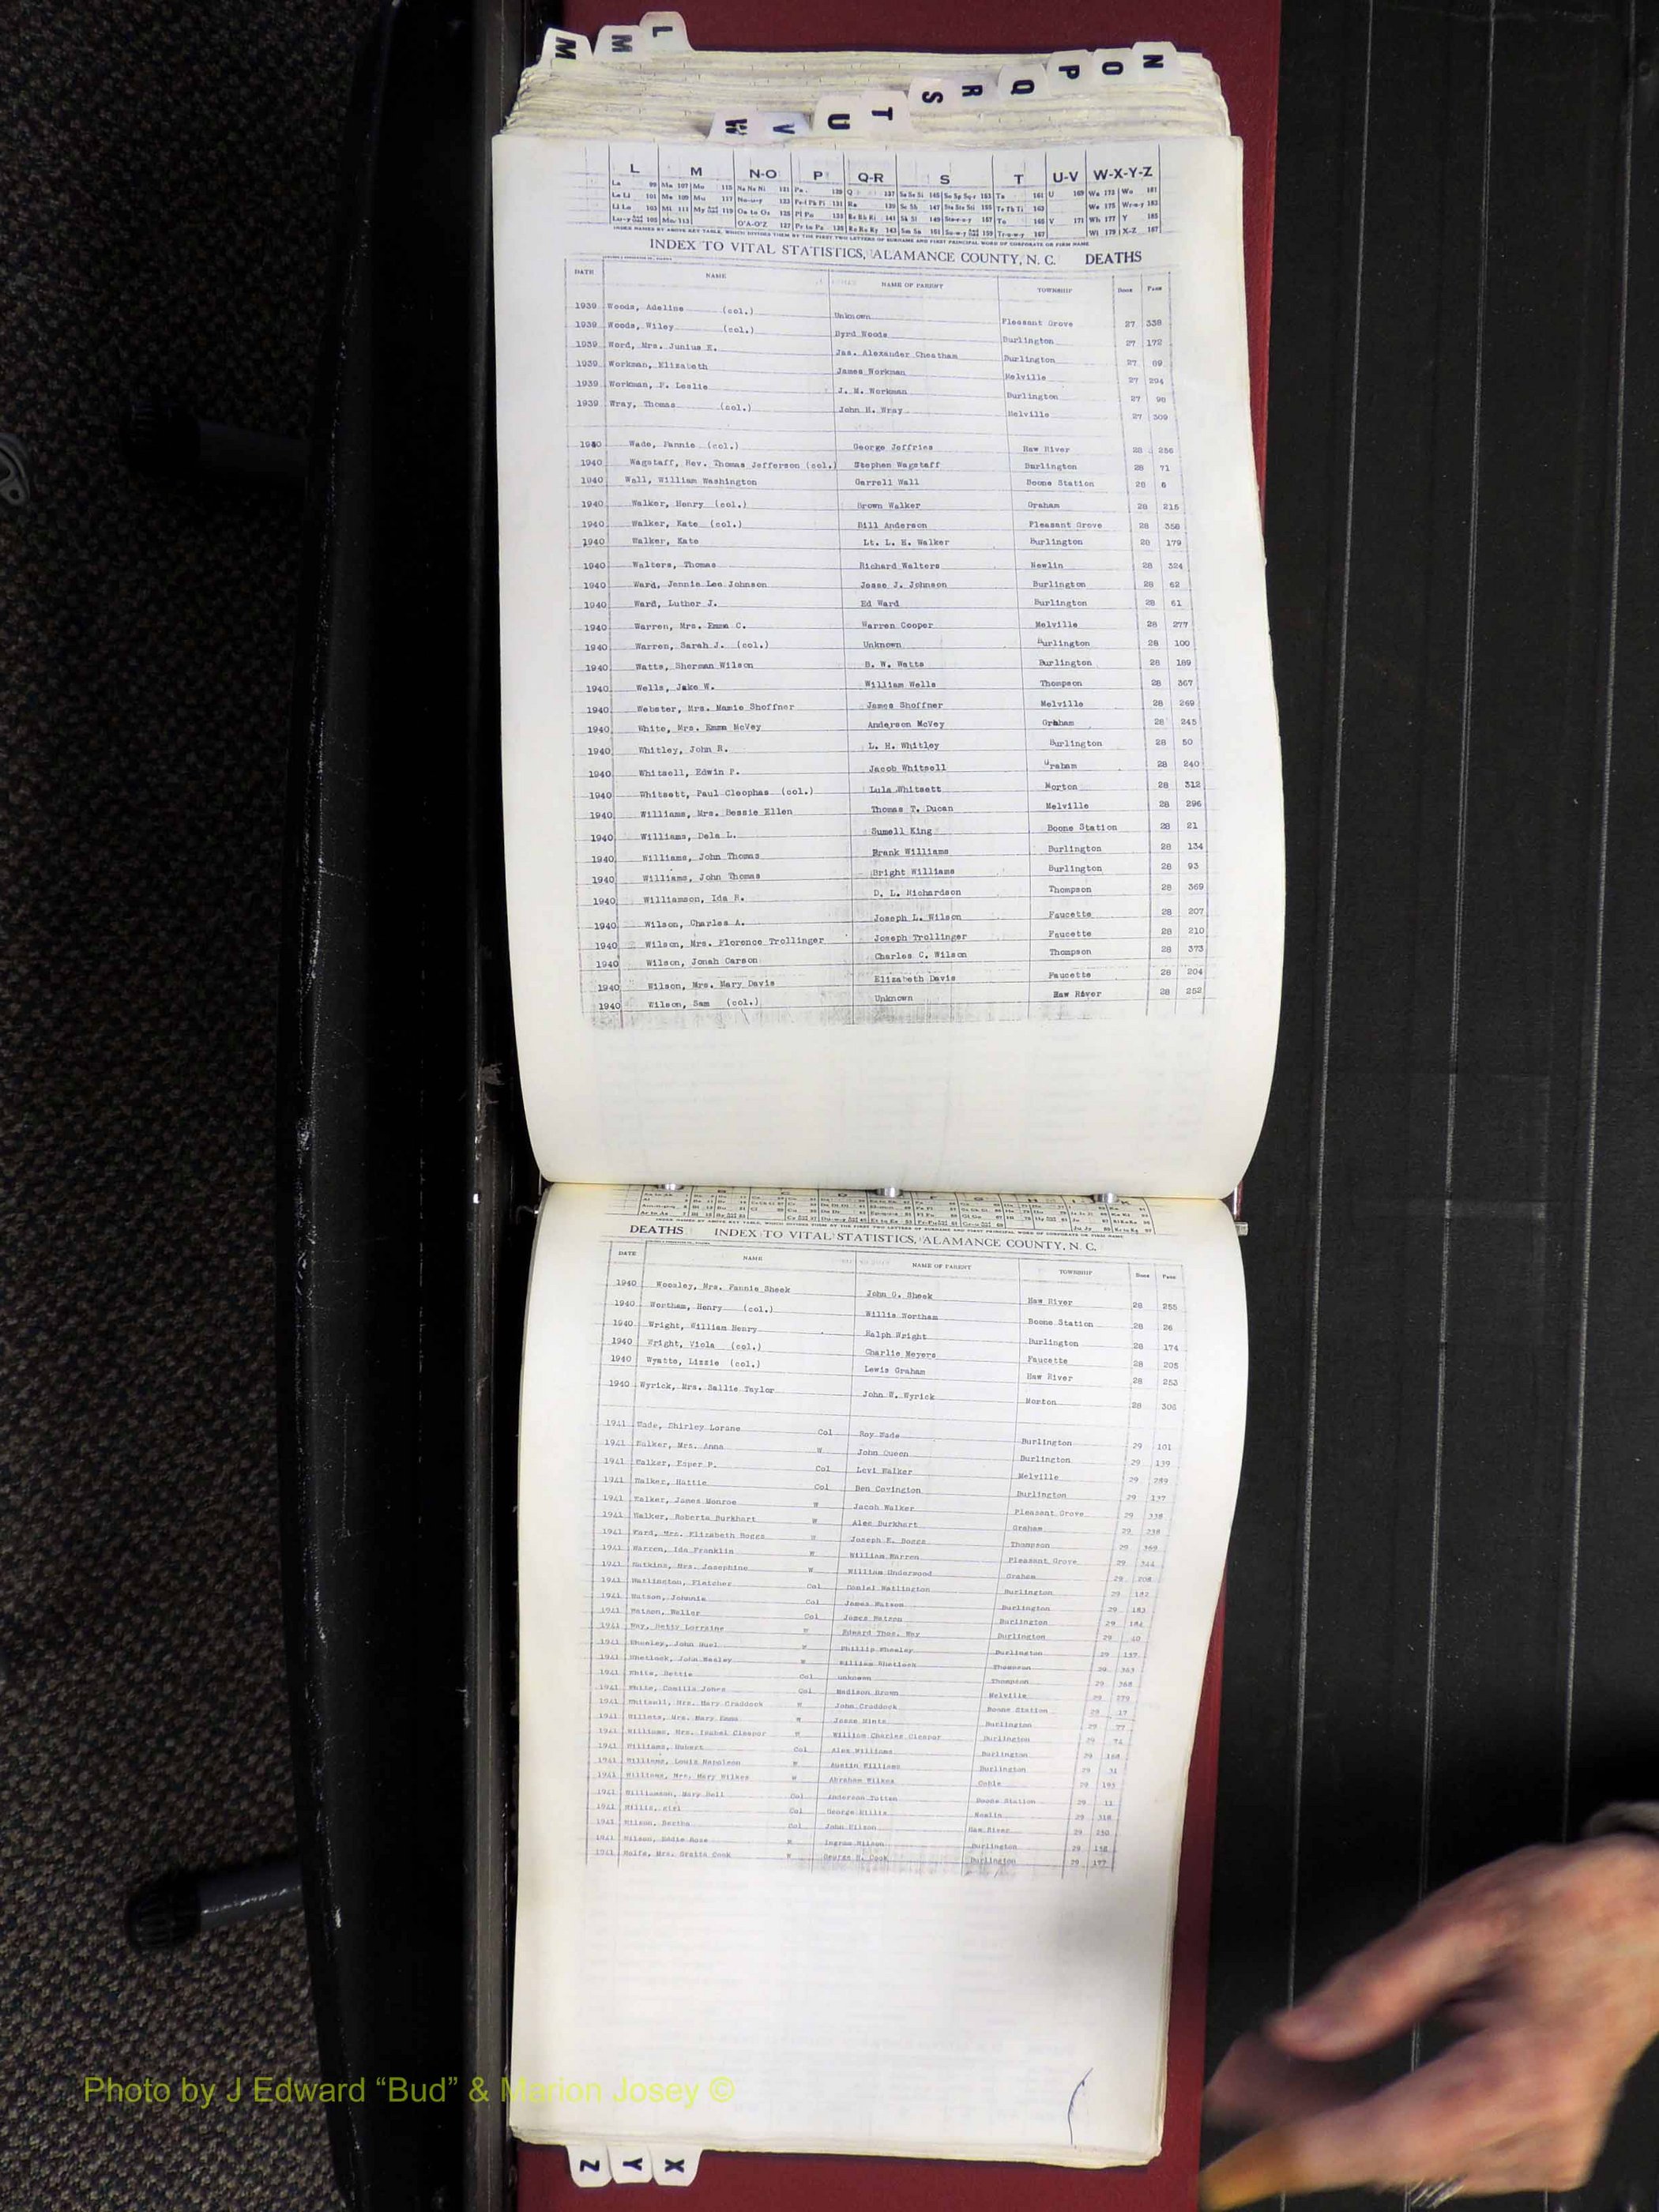 L
M
M
N
O
P
Q
R
S
T
U
V
W
L M N-O P Q-R S T U-V W-X-Y-Z
INDEX NAMES BY ABOVE KEY TABLE, WHICH DIVIDES THEM BY THE FIRST TWO LETTERS OF SURNAME AND FIRST PRINCIPAL WORD OF CORPORATE OR FIRM NAME
INDEX TO VITAL STATISTICS, ALAMANCE COUNTY, N. C. DEATHS
DATE NAME NAME OF PARENT TOWNSHIP BOOK PAGE
1939 Woods, Adeline (col.) Unknown Pleasant Grove 27 338
1939 Woods, Wiley (col.) Byrd Woods Burlington 27 172
1939 Word, Mrs. Junius E. Jas. Alexander Cheatham Burlington 27 89
1939 Workman, Elizabeth James Workman Melville 27 294
1939 Workman, F. Leslie J. M. Workman Burlington 27 98
1939 Wray, Thomas (col.) John H. Wray Melville 27 309
1940 Wade, Fannie (col.) George Jeffries Haw River 28 256
1940 Wagstaff, Rev. Thomas Jefferson (col.) Stephen Wagstaff Burlington 28 71
1940 Wall, William Washington Garrell Wall Boone Station 28 8
1940 Walker, Henry (col.) Brown Walker Graham 28 215
1940 Walker, Kate (col.) Bill Anderson Pleasant Grove 28 358
1940 Walker, Kate Lt. L. H. Walker Burlington 28 179
1940 Walters, Thomas Richard Walters Newlin 28 324
1940 Ward, Jennie Lee Johnson Jesse J. Johnson Burlington 28 62
1940 Ward, Luther J. Ed Ward Burlington 28 61
1940 Warren, Mrs. Emma C. Warren Cooper Melville 28 277
1940 Warren, Sarah J. (col.) Unknown Burlington 28 100
1940 Watts, Sherman Wilson B. W. Watts Burlington 28 189
1940 Wells, Jake W. William Wells Thompson 28 367
1940 Webster, Mrs. Mamie Shoffner James Shoffner Melville 28 269
1940 White, Mrs. Emma McVey Anderson McVey Graham 28 245
1940 Whitley, John R. L. H. Whitley Burlington 28 50
1940 Whitsell, Edwin P. Jacob Whitsell Graham 28 240
1940 Whitsett, Paul Cleophas (col.) Lula Whitsett Morton 28 312
1940 Williams, Mrs. Bessie Ellen Thomas T. Ducan Melville 28 296
1940 Williams, Dela L. Sumell King Boone Station 28 21
1940 Williams, John Thomas Frank Williams Burlington 28 134
1940 Williams, John Thomas Bright Williams Burlington 28 93
1940 Williamson, Ida R. D. L. Richardson Thompson 28 369
1940 Wilson, Charles A. Joseph L. Wilson Faucette 28 207
1940 Wilson, Mrs. Florence Trollinger Joseph Trollinger Faucette 28 210
1940 Wilson, Jonah Carson Charles C. Wilson Thompson 28 373
1940 Wilson, Mrs. Mary Davis Elizabeth Davis Faucette 28 204
1940 Wilson, Sam (col.) Unknown Haw River 28 252
DEATHS INDEX TO VITAL STATISTICS, ALAMANCE COUNTY, N. C.
DATE NAME NAME OF PARENT TOWNSHIP BOOK PAGE
1940 Woosley, Mrs. Fannie Sheek John O. Sheek Haw River 28 255
1940 Wortham, Henry (col.) Willis Wortham Boone Station 28 26
1940 Wright, William Henry Ralph Wright Burlington 28 174
1940 Wright, Viola (col.) Charlie Meyers Faucette 28 205
1940 Wyatte, Lizzie (col.) Lewis Graham Haw River 28 253
1940 Wyrick, Mrs. Sallie Taylor John W. Wyrick Morton 28 306
1941 Wade, Shirley Lorane Col Roy Wade Burlington 29 101
1941 Walker, Mrs. Anna W John Queen Burlington 29 139
1941 Walker, Esper P. Col Levi Walker Melville 29 289
1941 Walker, Hattie Col Ben Covington Burlington 29 137
1941 Walker, James Monroe W Jacob Walker Pleasant Grove 29 338
1941 Walker, Roberta Burkhart W Alec Burkhart Graham 29 238
1941 Ward, Mrs. Elizabeth Boggs W Joseph E. Boggs Thompson 29 369
1941 Warren, Ida Franklin W William Warren Pleasant Grove 29 344
1941 Watkins, Mrs. Josephine W William Underwood Graham 29 208
1941 Watlington, Fletcher Col Daniel Watlington Burlington 29 182
1941 Watson, Johnnie Col James Watson Burlington 29 183
1941 Watson, Walter Col James Watson Burlington 29 184
1941 Way, Betty Lorraine W Edward Thos. Way Burlington 29 40
1941 Wheeley, John Buel W Phillip Wheeley Burlington 29 157
1941 Whetlock, John Wesley W William Whetlock Thompson 29 363
1941 White, Bettie Col unknown Thompson 29 368
1941 White, Camilla Jones Col Madison Brown Melville 29 279
1941 Whitsell, Mrs. Mary Craddock W John Craddock Boone Station 29 17
1941 Mrs. Mary Emma W Jesse Burlington 29 77
1941 Williams, Mrs. Isabel Clapper W William Charles Burlington 29 74
1941 Williams, Hubert Col Alex Williams Burlington 29 168
1941 Williams, Louis Napoleon W Austin Williams Burlington 29 31
1941 Williams, Mrs. Mary Wilkes W Abraham Wilkes Coble 29 193
1941 Williamson, Mary Bell Col Anderson Totten Boone Station 29 11
1941 Willis, girl Col George Willis Newlin 29 318
1941 Wilson, Bertha Col John Wilson Haw River 29 250
1941 Wilson, Eddie Rose W Ingram Wilson Burlington 29 158
1941 Wolfe, Mrs. Gretta Cook W George H. Cook Burlington 29 177
Photo by J Edward “Bud” & Marion Josey ©
Z
Y
X